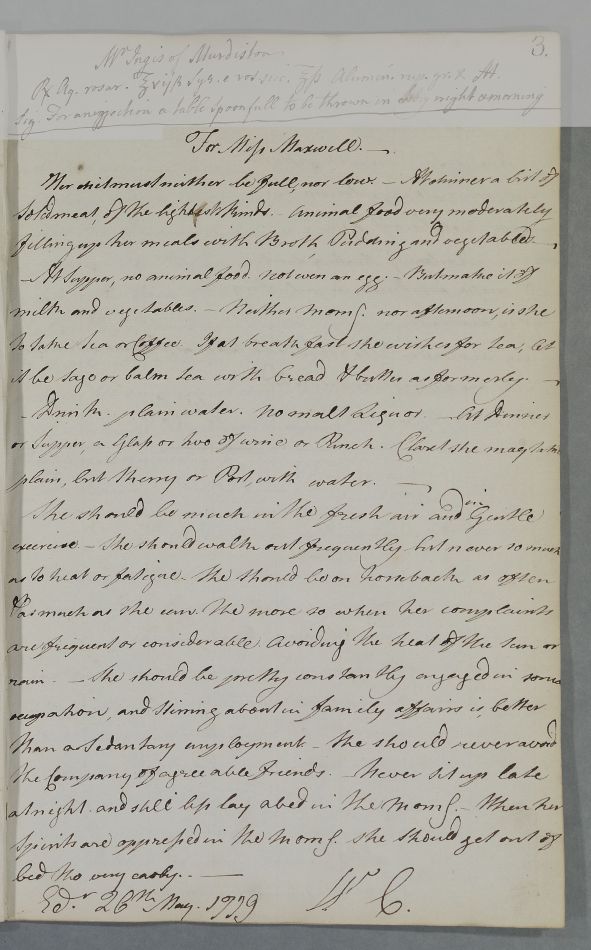 3.
Mr Ingis of Murdiston
Rx Aq. rosar. ℥vi ſs Syr. e ror sic. ℥ſs Alumin. rup. gr. x M.
Sig For an injection a table spoonfull to be thrown in every night & morning
For Miſs Maxwell. —
Her diet must neither be full, nor low. — At dinner a bit of
Solid meat, of the lightest kinds. Animal food very moderately
filling up her meals with Broth, Pudding and vegetables. —
— At Supper, no animal food. Not even an egg. — But make it of
milk and vegetables. — Neither Morng. nor afternoon, is she
to take Tea or Coffee. If at breakfast she wishes for tea, let
it be Sage or balm tea with bread & butter as formerly. —
— Drink. plain water. No malt Liquor. — At Dinner
or Supper a Glaſs or two of wine or Punch. Claret she may take
plain, but Sherry or Port, with water. —
She should be much in the fresh air and in Gentle
exercise — She should walk out frequently but never so much
as to heat or fatigue. She should be on horseback as often
& as much as she can. The more so when her complaints
are frequent or considerable. Avoiding the heat of the Sun or
rain. — She should be pretty constantly engaged in some
occupation, and Stirring about in family affairs is better
than a Sedentary employment — She should never avoid
the Company of agreeable friends. — Never Sit up late
at night. and still leſs lay abed in the Morng. — When her
Spirits are oppreſsed in the Morng. she should get out of
bed tho very early. —
Edr. 26th May. 1779 W C.